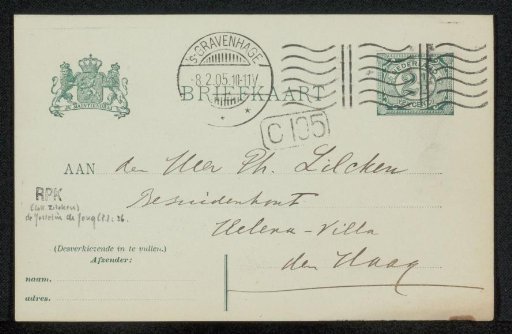 'S-GRAVENHAGE
8.2.05.10-11V
BRIEFKAART
NEDERLAND
2
C 135
AAN den Heer Ph. Zilcken
Bezuidenhout
Helena-Villa
den Haag
RPK
(coll. Zilcken)
de Josselin de Jong (P.): 26.
(Desverkiezende in te vullen.)
Afzender:
naam.
adres.